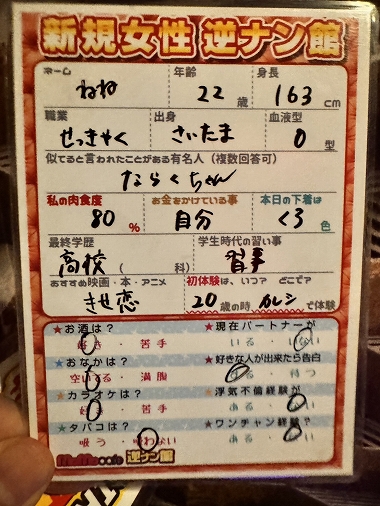 新規女性 逆ナン館
ネーム 年齢 身長
ねね 22 歳 163 cm
職業 出身 血液型
せっきゃく さいたま O 型
似てると言われたことがある有名人（複数回答可）
ならくちゃん
私の肉食度 お金をかけている事 本日の下着は
80 % 自分 くろ 色
最終学歴 学生時代の習い事
高校 （ 科） 習字
おすすめ映画・本・アニメ 初体験は、いつ？ どこで？
きせ恋 20 歳の時 カレシ で体験
★お酒は？ ★現在パートナーが
好き・苦手 いる・いない
★おなかは？ ★好きな人が出来たら告白
空いてる・満腹 する・待つ
★カラオケは？ ★浮気不倫経験が
好き・苦手 ある・ない
★タバコは？ ★ワンチャン経験？
吸う・吸わない ある・ない
逆ナン館